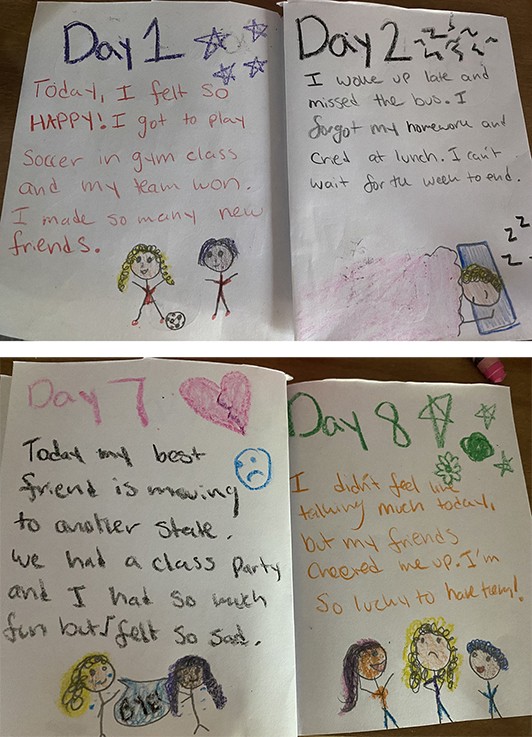 Day 1
Today, I felt so
HAPPY! I got to play
Soccer in gym class
and my team won.
I made so many new
friends.
Day 2
I woke up late and
missed the bus. I
forgot my homework and
cried at lunch. I can't
wait for the week to end.
z z
z
z
Day 7
Today my best
friend is moving
to another state.
we had a class Party
and I had so much
fun but I felt so sad.
BYE
Day 8
I didn't feel like
talking much today,
but my friends
cheered me up. I'm
so lucky to have them!